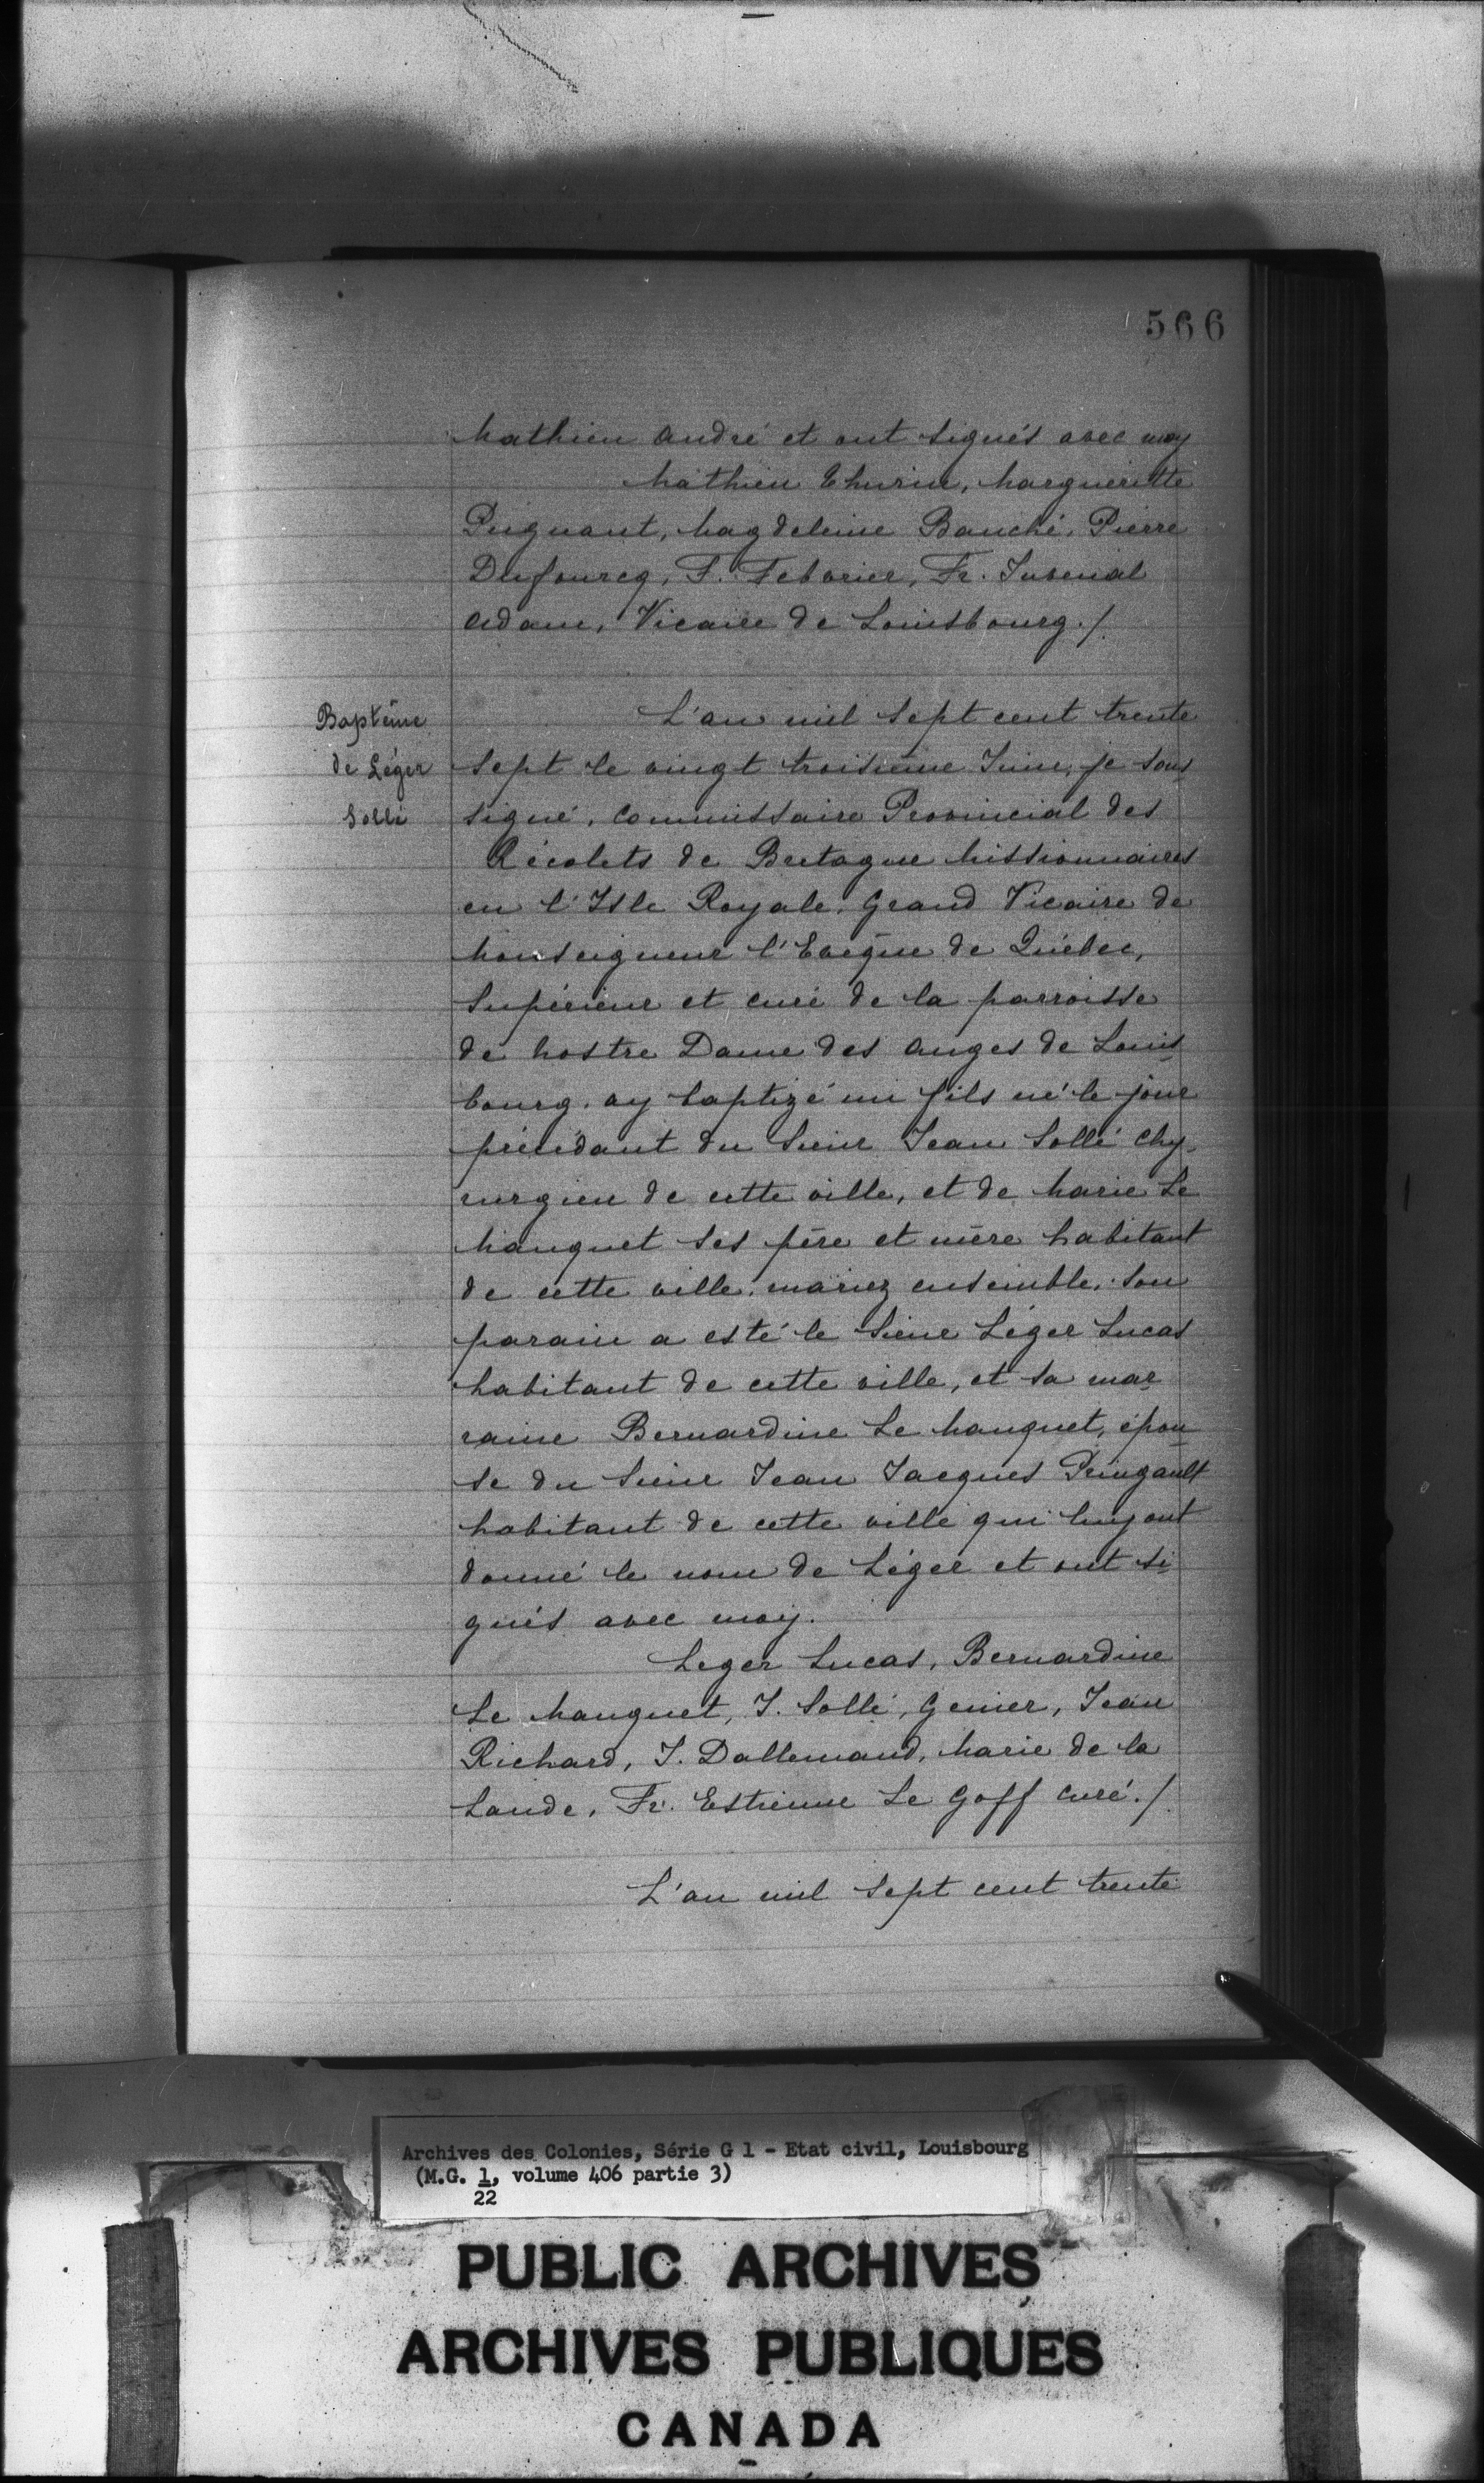 566
Mathieu André et ont signés avec moy
Mathieu Thurin, Margueritte
Peignant, Magdeleine Bauché, Pierre
Dufourcq, F. Febvrier, Fr. Juvenal
Adam, Vicaire de Louisbourg./.
Baptême
de Léger
Sollé
L'an mil sept cent trente
sept le vingt troisième Juin, je sous
signé, Commissaire Provincial des
Récolets de Bretagne Missionnaires
en l'Isle Royale, Grand Vicaire de
Monseigneur l'Evêque de Québec,
Supérieur et curé de la parroisse
de Nostre Dame des Anges de Louis
bourg, ay baptizé un fils né le jour
précédant du Sieur Jean Sollé Chy-
rurgien de cette ville, et de Marie Le
Manquet ses père et mère habitant
de cette ville, mariez ensemble, son
parain a esté le Sieur Léger Lucas
habitant de cette ville, et sa mar
raine Bernardine Le Manquet, épou
se du Sieur Jean Jacques Pringault
habitant de cette ville qui luy ont
donné le nom de Léger et ont si
gnés avec moy.
Leger Lucas, Bernardine
Le Manquet, J. Sollé, Genier, Jean
Richard, J. Dallemand, Marie de la
Lande, Fr. Estienne Le Goff curé./.
L'an mil sept cent trente
Archives des Colonies, Série G 1 - Etat civil, Louisbourg
(M.G. 1, volume 406 partie 3)
22
PUBLIC ARCHIVES
ARCHIVES PUBLIQUES
CANADA